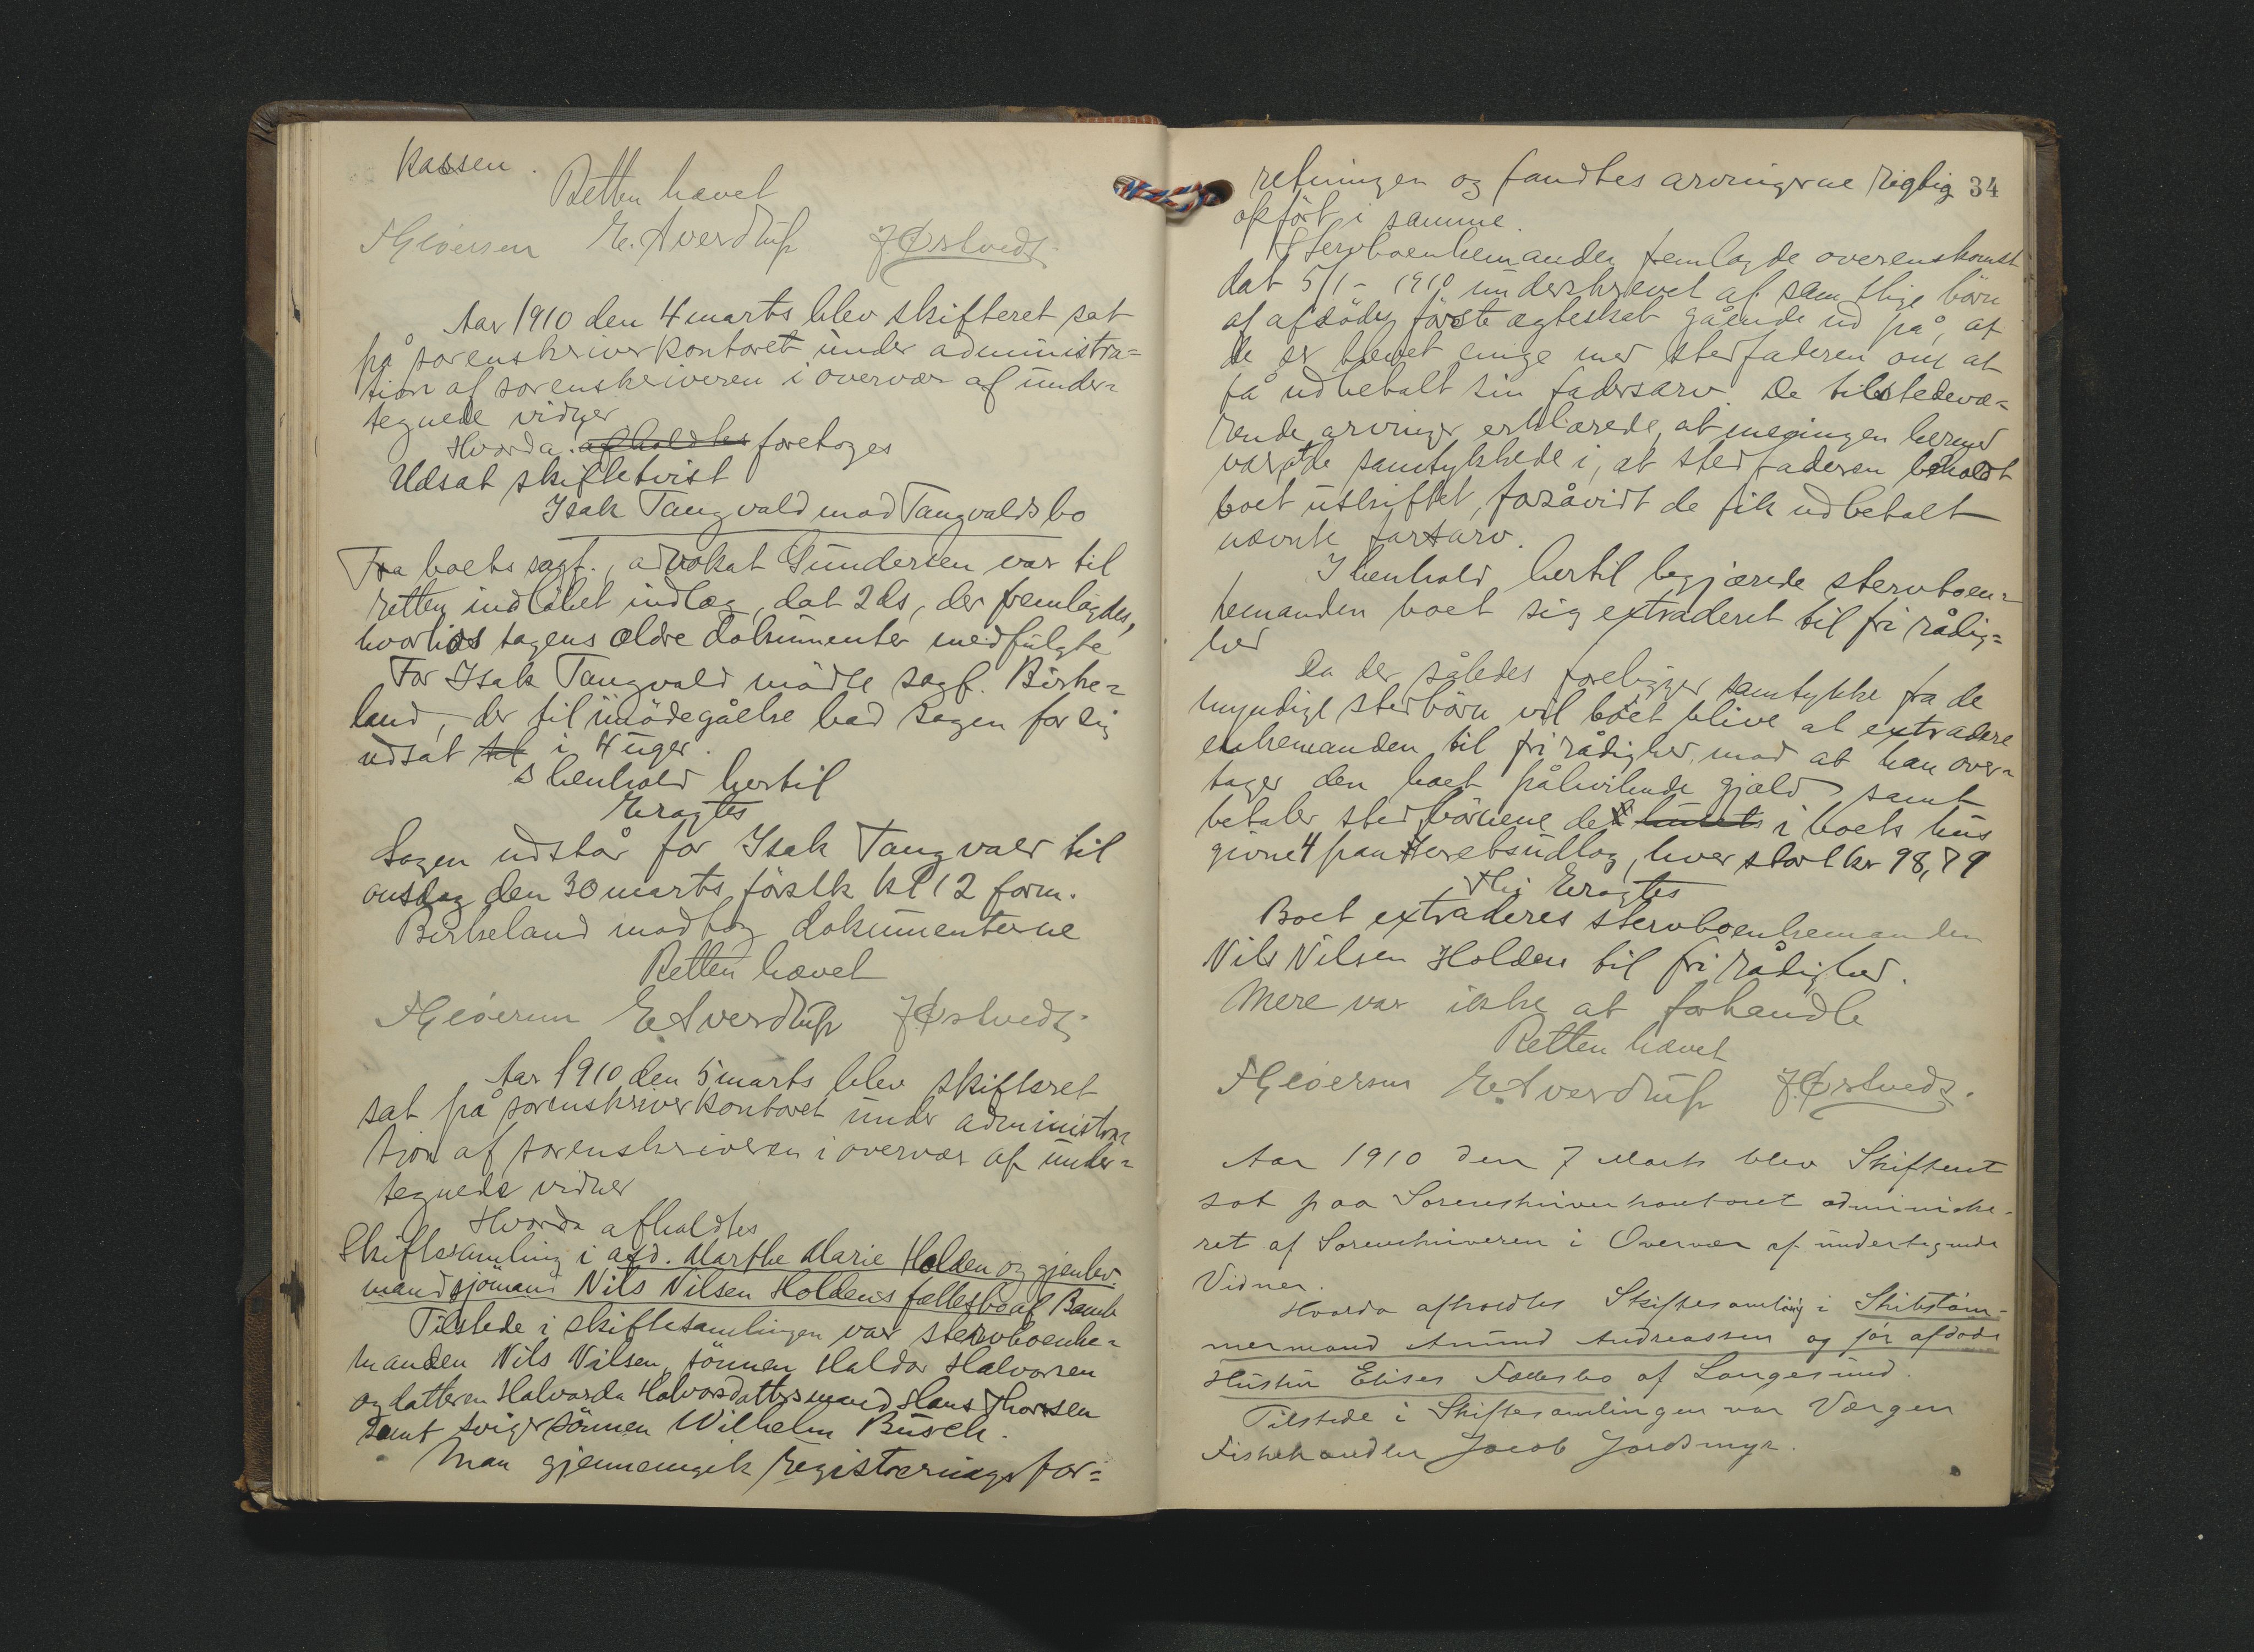 kassen.
Retten hævet
E. Sverdrup J Østvedt
Aar 1910 den 4 marts blev skifteret sat
på sorenskriverkontoret under administra=
tion af sorenskriveren i overvær af under=
tegnede vidner
Hvorda afholdtes foretoges
Udsat skiftetvist
Isak Tangvald mod Tangvalds bo
Fra boets sagf., advokat Gundersen var til
retten indløbet indlæg, dat 2 ds, der fremlagdes,
hvorhos sagens ældre dokumenter medfulgte
For Isak Tangvald mödte sagf. Birke=
land, der til imödegåelse bad sagen for sig
udsat til i 4 uger.
I henhold hertil
Eragtes
Sagen udstår for Isak Tangvald til
onsdag den 30 marts förstk kl 12 form.
Birkeland modtog dokumenterne
Retten hævet
E. Sverdrup J Østvedt
Aar 1910 den 5 marts blev skifteret
sat på sorenskriverkontoret under administra=
tion af sorenskriveren i overvær af under=
tegnede vidner
Hvorda afholdtes
Skiftesamling i afd. Marthe Marie Holden og gjenlev.
mand sjömand Nils Nilsen Holdens fællesbo af Bamle
Tilstede i skiftesamlingen var stervboenke=
manden Nils Nilsen, sönnen Haldor Halvorsen
og datteren Halvorda Halvorsdatters mand Hans Thorsen
samt svigersönnen Wilhelm Busch.
Man gjennemgik registreringsfor=
34
retningen og fandtes arvingerne rigtig
opfört i samme.
Stervboenkemanden fremlagde overenskomst
dat 5/1 - 1910 underskrevet af samtlige börn
af afdödes förste ægteskab gående ud på, at
de er blevet enige med stedfaderen om at
få udbetalt sin fadersarv. De tilstedevæ=
rende arvinger erklærede, at meningen hermed
var, at de samtykkede i, at stedfaderen beholdt
boet uskiftet, forsåvidt de fik udbetalt
nævnte farsarv.
I henhold hertil begjærede stervboen=
kemanden boet sig extraderet til fri rådig=
hed
Da der således foreligger samtykke fra de
myndige stedbörn vil boet blive at extradere
enkemanden til fri rådighed mod at han over=
tager den boet påhvilende gjæld samt
betaler stedbörnene de i boets hus
givne 4 panteretsudlæg, hver stort kr 98,79
Thi Eragtes
Boet extraderes stervboenkemanden
Nils Nilsen Holden til fri rådighed.
Mere var ikke at forhandle
Retten hævet
E. Sverdrup J Østvedt.
Aar 1910 den 7 Marts blev Skifteret
sat paa Sorenskriverkontoret administre-
ret af Sorenskriveren i Overvær af undertegnede
Vidner.
Hvorda afholdtes Skiftesamling i Skibstøm-
mermand Amund Andreassen og før afdøde
Hustru Elises Fællesbo af Langesund.
Tilstede i Skiftesamlingen var Værgen
Fiskehandler Jacob Jordsmyr.